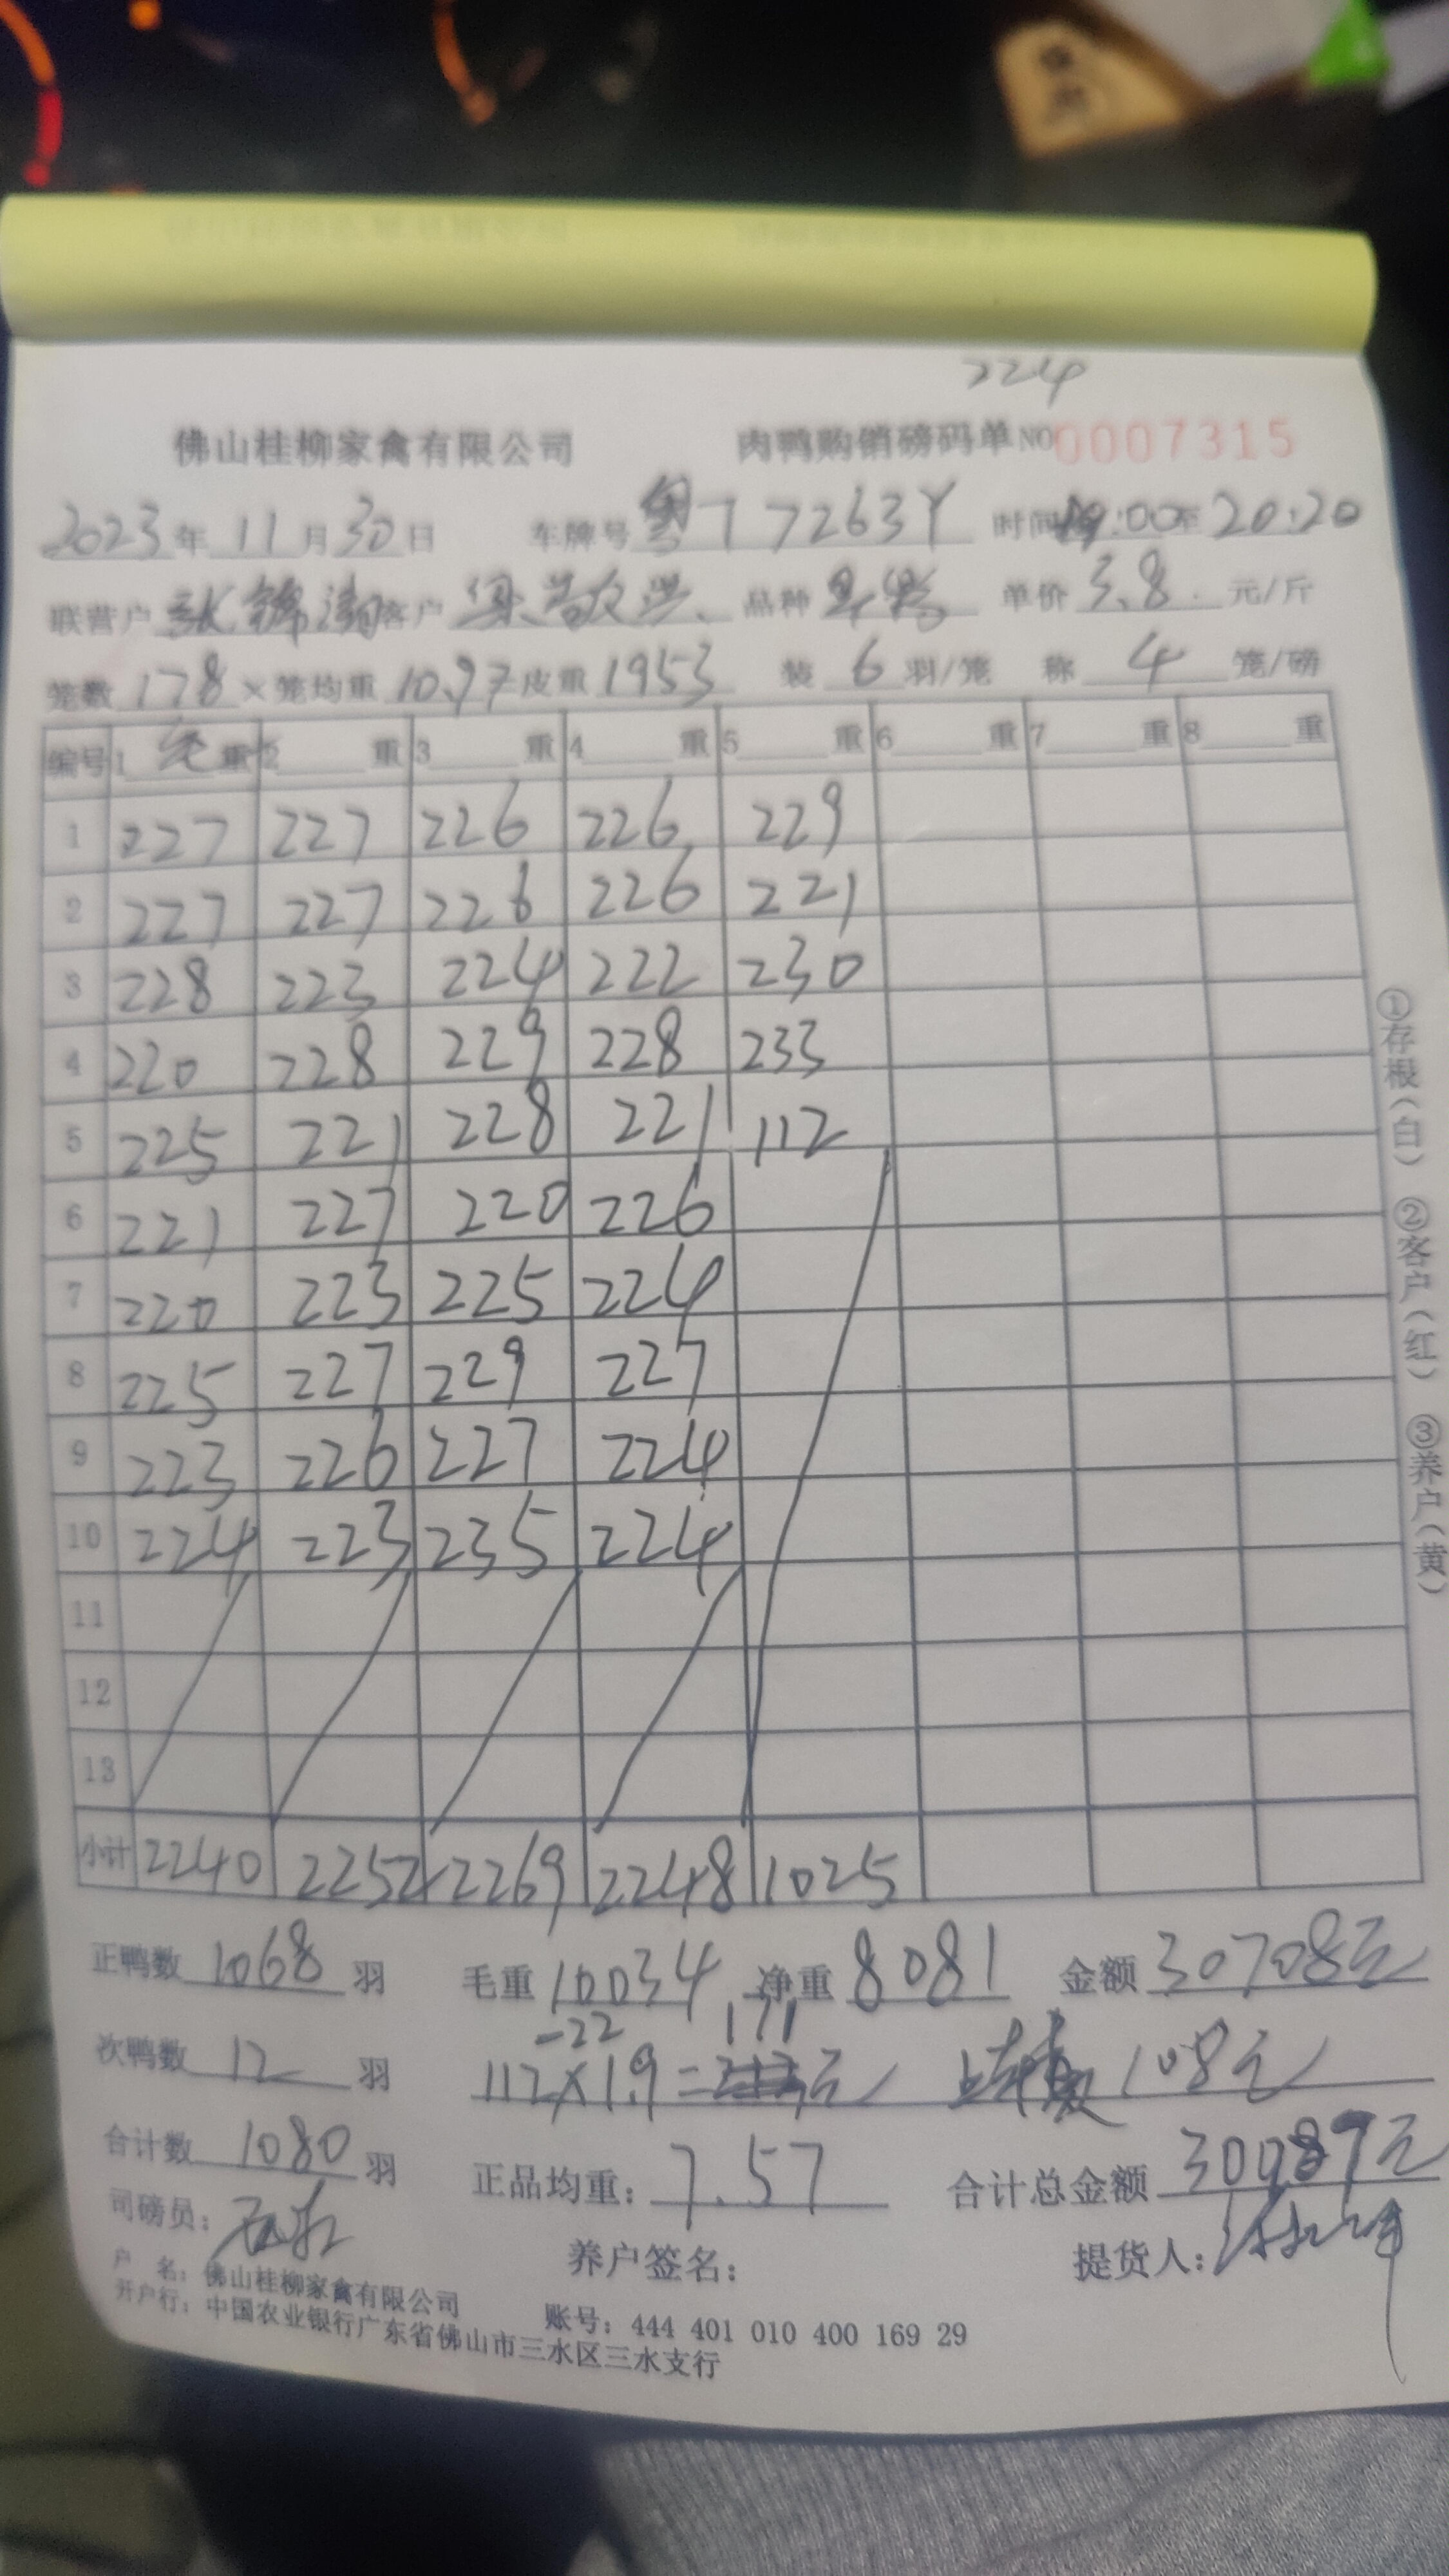 224
佛山桂柳家禽有限公司 肉鸭购销磅码单 NO 0007315
2023 年 11 月 30 日 车牌号 粤T7263Y 时间 19:00 至 20:20
联营户 张锦 客户 梁敬兴 品种 单价 3.8 元/斤
笼数 178 × 笼均重 10.97 皮重 1953 装 6 羽/笼 称 4 笼/磅
编号 1 毛 重 2 重 3 重 4 重 5 重 6 重 7 重 8 重
1 227 227 226 226 229
2 227 227 226 226 221
3 228 223 224 222 230
4 220 228 229 228 233
5 225 221 228 221 112
6 221 227 220 226
7 220 223 225 224
8 225 227 229 227
9 223 226 227 224
10 224 223 235 224
11
12
13
小计 2240 2252 2269 2248 1025
正鸭数 1068 羽 毛重 10034 净重 8081 金额 30708元
-22 171
次鸭数 12 羽 112×1.9= 元 上车费 108元
合计数 1080 羽 正品均重: 7.57 合计总金额 30987元
司磅员: 养户签名: 提货人:
户 名: 佛山桂柳家禽有限公司 账号: 444 401 010 400 169 29
开户行: 中国农业银行广东省佛山市三水区三水支行
①存根(白) ②客户(红) ③养户(黄)